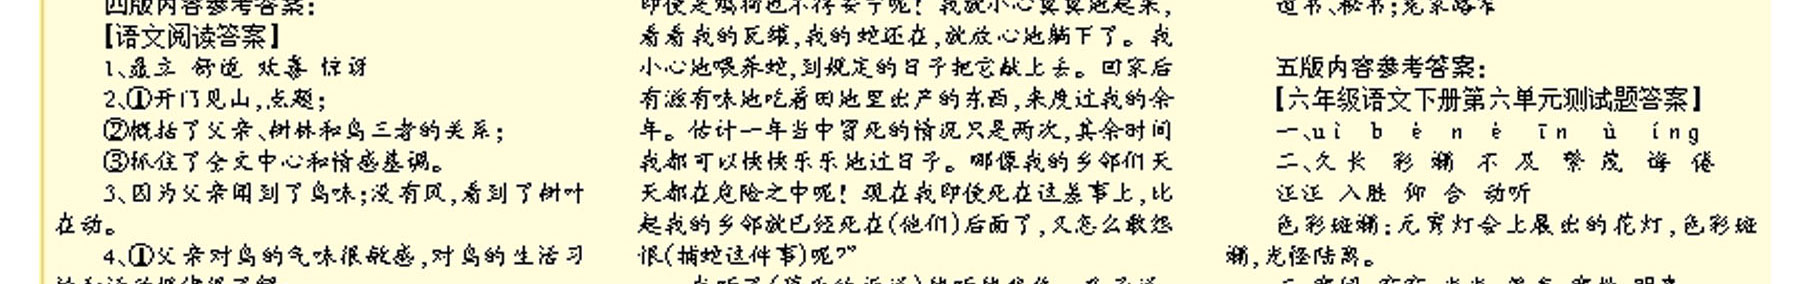 四版内容参考答案：
【语文阅读答案】
1、矗立 舒适 欢喜 惊讶
2、①开门见山,点题；
②概括了父亲、树林和鸟三者的关系；
③抓住了全文中心和情感基调。
3、因为父亲闻到了鸟味；没有风,看到了树叶
在动。
4、①父亲对鸟的气味很敏感,对鸟的生活习
即使是鸡狗也不得安宁呢！我就小心翼翼地起来,
看看我的瓦罐,我的蛇还在,就放心地躺下了。我
小心地喂养蛇,到规定的日子把它献上去。回家后
有滋有味地吃着田地里出产的东西,来度过我的余
年。估计一年当中冒死的情况只是两次,其余时间
我都可以快快乐乐地过日子。哪像我的乡邻们天
天都在危险之中呢！现在我即使死在这差事上,比
起我的乡邻就已经死在(他们)后面了,又怎么敢怨
恨(捕蛇这件事)呢？”
五版内容参考答案：
【六年级语文下册第六单元测试题答案】
一、uì b è n é īn ù íng
二、久 长 彩 斓 不 及 繁 茂 诲 倦
汪汪 入胜 仰 合 动听
色彩斑斓：元宵灯会上展出的花灯,色彩斑
斓,光怪陆离。